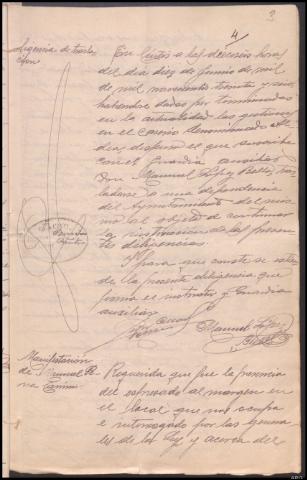 3
4
Diligencia de trasla-
cion
En Curtis a las dieciseis horas
del dia diez de Junio de mil
de mil novecientos treinta y seis
habiendose dados por terminadas
en la actualidad las gestiones
en el Casino denominado
dispuso el que suscribe
con el Guardia auxiliar
Don Manuel López tras-
ladarse a una dependencia
del Ayuntamiento del mis-
mo al objeto de continuar
la instruccion de las presen-
tes diligencias.
Y para que conste se extien-
de la presente diligencia que
firma el instructor y Guardia
auxiliar.
Manuel López
Manifestación
de Manuel
Requerida que fue la presencia
del expresado al margen en
el local que nos ocupa
e interrogado por las genera-
les de la Ley y acerca del